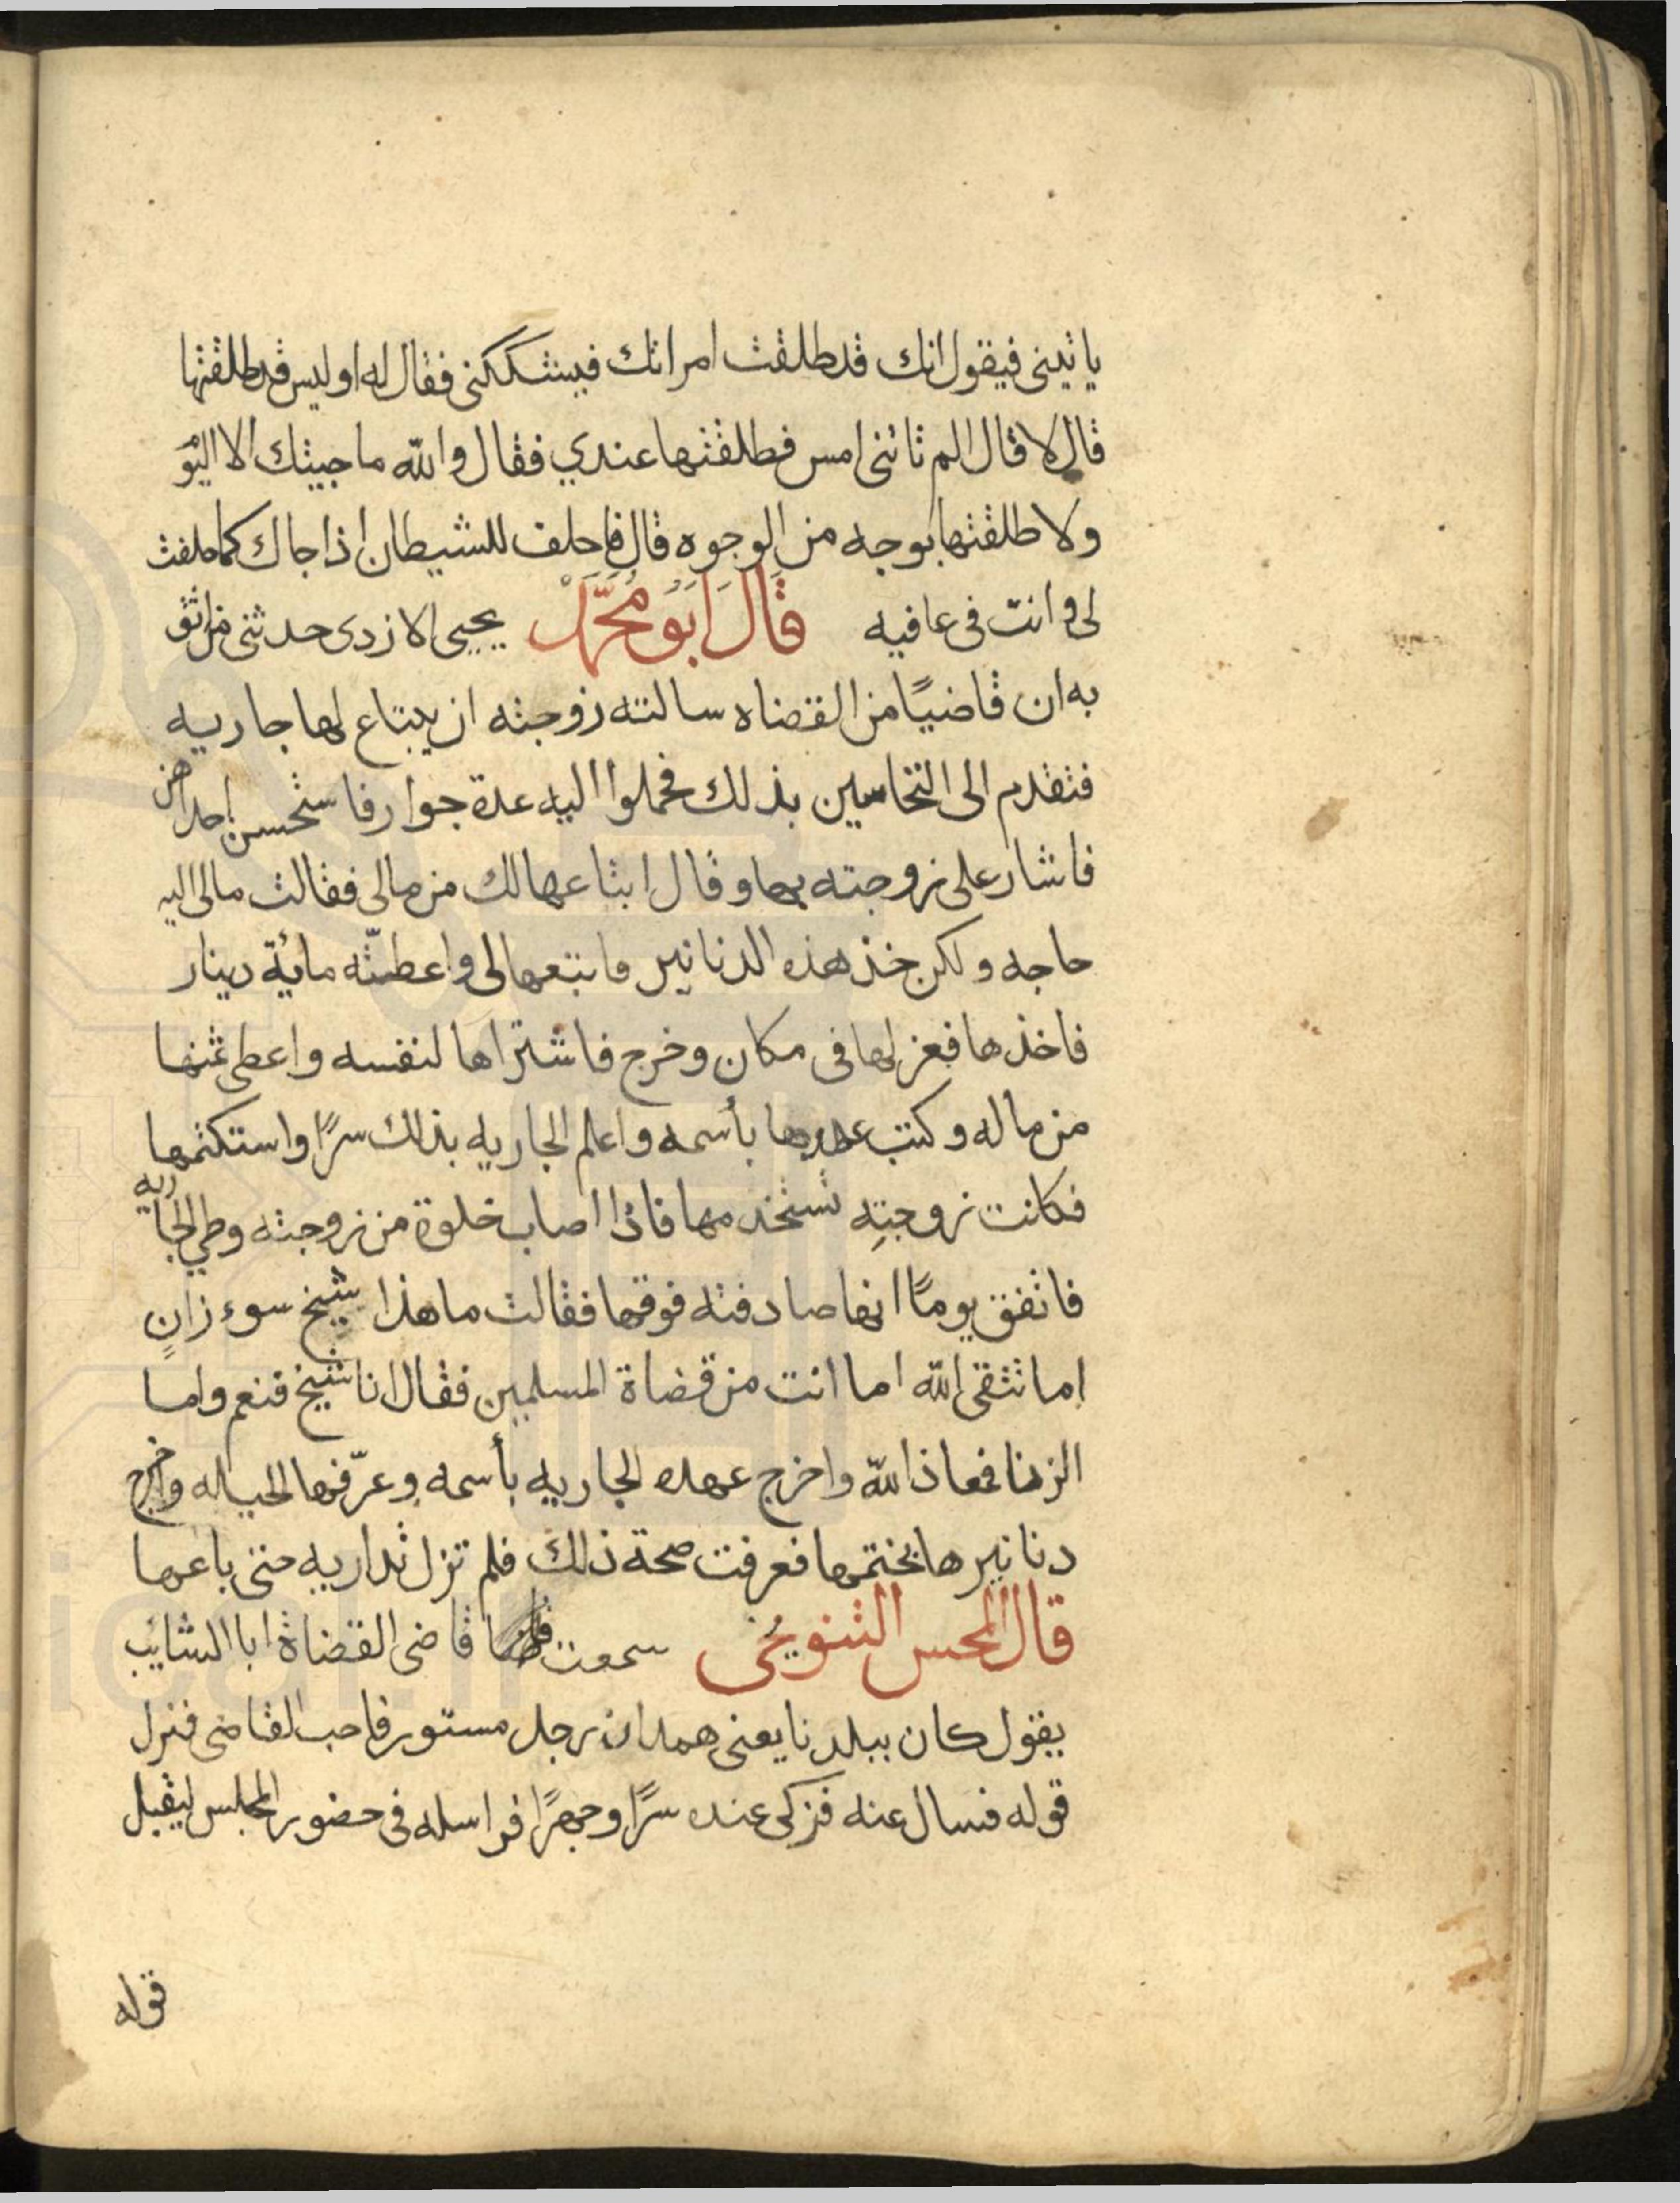 ياتينى فيقول انك قد طلقت امراتك فيشككنى فقال له اوليس قد طلقتها
قال لا قال الم تاتنى امس فطلقتها عندي فقال والله ما جيتك الا اليوم
ولا طلقتها بوجه من الوجوه قال فاحلف للشيطان اذا جاك كما حلفت
لى وانت فى عافيه قَالَ اَبُو مُحَمَّد يحيى الازدى حدثنى من اثق
به ان قاضيًا من القضاه سالته زوجته ان يبتاع لها جاريه
فتقدم الى النخاسين بذلك فحملوا اليه عدة جوار فاستحسن احداهن
فاشار على زوجته بها وقال ابتاعها لك من مالى فقالت مالى اليه
حاجه ولكن خذ هذه الدنانير فابتعها لى واعطته مائة دينار
فاخذها فعزلها فى مكان وخرج فاشتراها لنفسه واعطى ثمنها
من ماله وكتب عهدتها بأسمه واعلم الجاريه بذلك سرًا واستكتمها
فكانت زوجتِه تستخدمها فاذا اصاب خلوة من زوجته وطي الجاريه
فاتفق يومًا انها صادفته فوقها فقالت ما هذا شيخ سوء زانٍ
اما تتقى الله اما انت من قضاة المسلمين فقال انا شيخ فنعم واما
الزنا فمعاذ الله واخرج عهده الجاريه بأسمه وعرّفها الحياله واخرج
دنانيرها بختمها فعرفت صحة ذلك فلم تزل تداريه حتى باعها
قال المحسن التنوخي سمعت قاضى القضاة ابا السائب
يقول كان ببلدنا يعنى همدان رجل مستور فاحب القاضى فنزل
قوله فسال عنه فزكى عنده سرًا وجهرًا فراسله فى حضور المجلس ليقبل
قوله